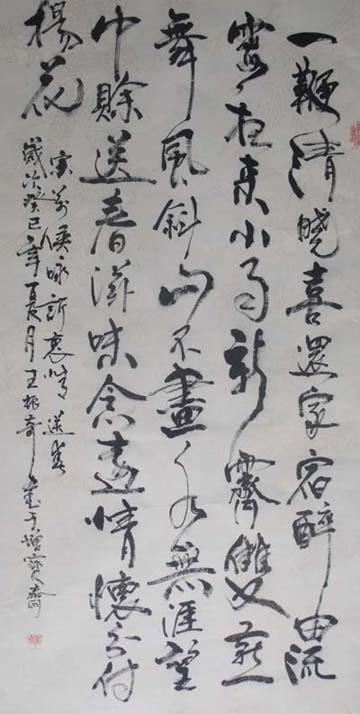 一鞭清曉喜還家宿醉困流
霞夜來小雨新霽雙燕
舞風斜山不盡水無涯望
中賒送春滋味念遠情懷分付
楊花
宋萬俟咏訴衷情送春
歲次癸巳年夏月王振奇書于寶齋